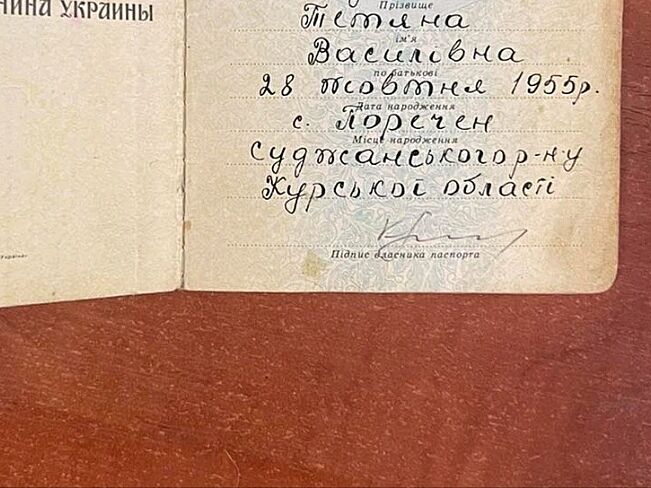 НИНА УКРАИНЫ
Прізвище
Тетяна
ім'я
Василівна
по батькові
28 жовтня 1955р.
Дата народження
с. Поречен
Місце народження
Суджанського р-ну
Курської області
Підпис власника паспорта